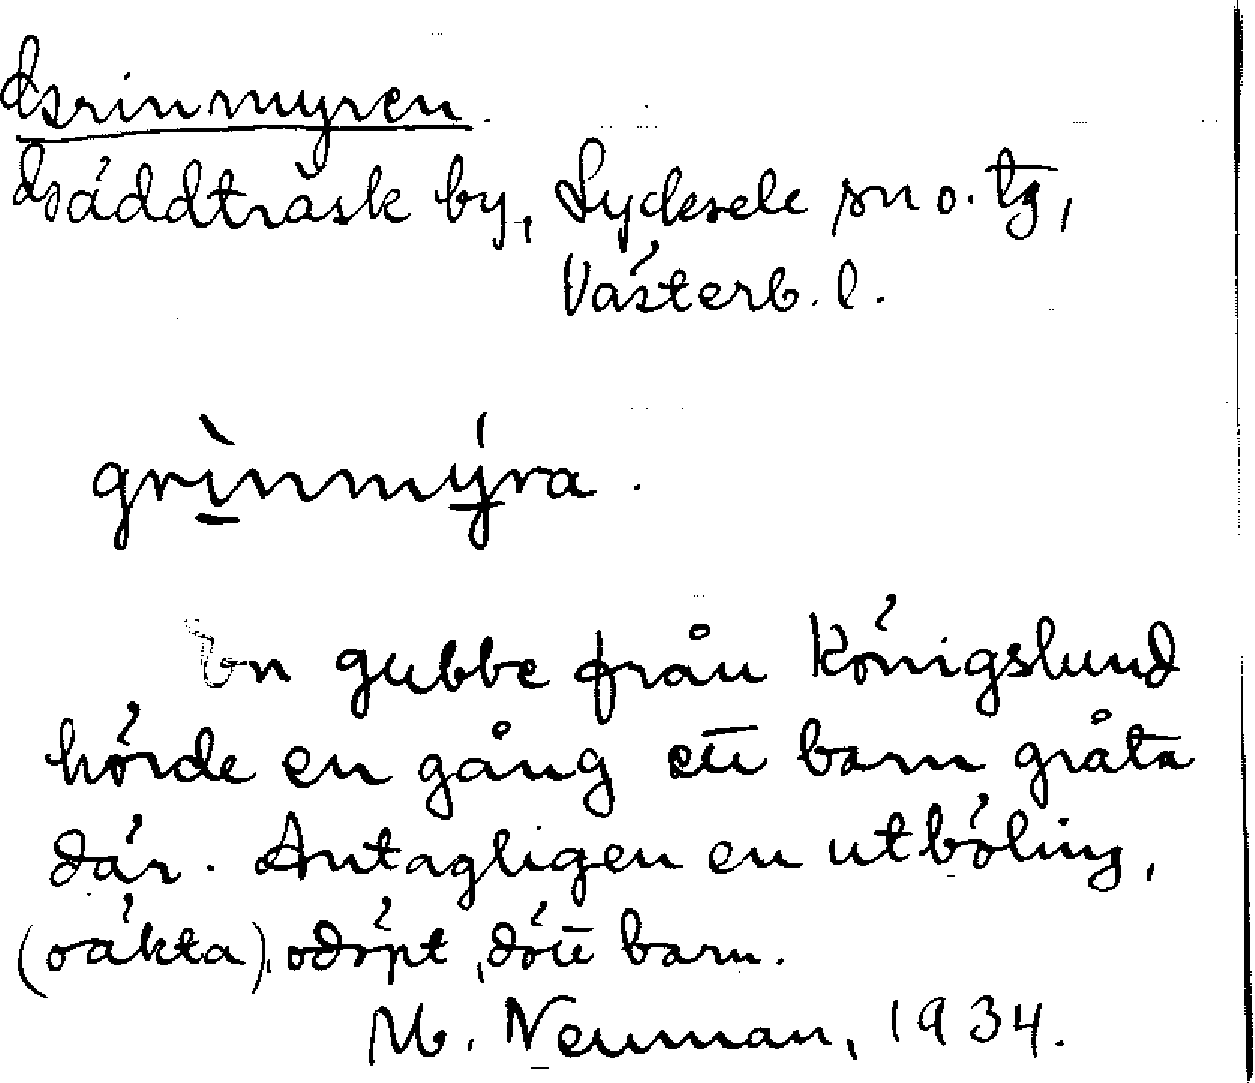 Grinmyren.
Gäddträsk by, Lycksele sn o. tg,
Västerb. l.
grìnmýra.
En gubbe från Königslund
hörde en gång ett barn gråta
där. Antagligen en utböling,
(oäkta), odöpt, dött barn.
M. Neuman, 1934.